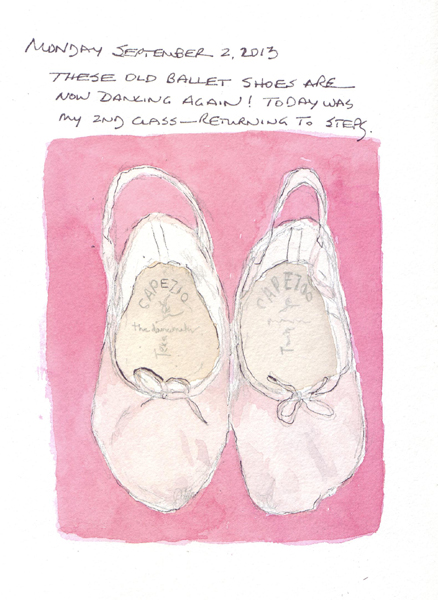 MONDAY SEPTEMBER 2, 2013
THESE OLD BALLET SHOES ARE
NOW DANCING AGAIN! TODAY WAS
MY 2ND CLASS—RETURNING TO STEPS.
CAPEZIO
the
CAPEZIO